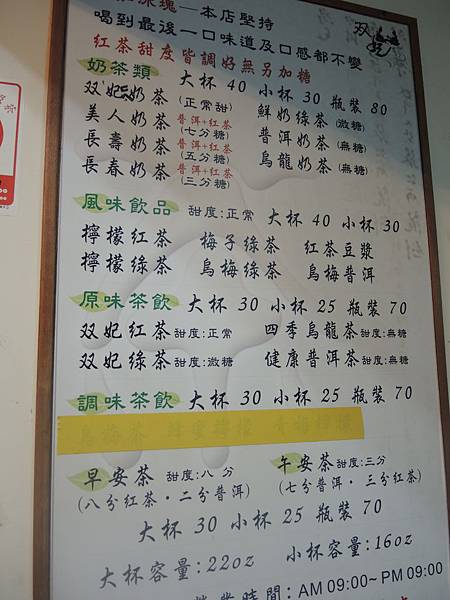 冰塊—本店堅持
双妃
喝到最後一口味道及口感都不變
紅茶甜度皆調好無另加糖
奶茶類 大杯 40 小杯 30 瓶裝 80
双妃奶茶(正常甜) 鮮奶綠茶(微糖)
美人奶茶 普洱+紅茶(七分糖) 普洱奶茶(無糖)
長壽奶茶 普洱+紅茶(五分糖) 烏龍奶茶(無糖)
長春奶茶 普洱+紅茶(三分糖)
風味飲品 甜度:正常 大杯 40 小杯 30
檸檬紅茶 梅子綠茶 紅茶豆漿
檸檬綠茶 烏梅綠茶 烏梅普洱
原味茶飲 大杯 30 小杯 25 瓶裝 70
双妃紅茶甜度:正常 四季烏龍茶甜度:無糖
双妃綠茶甜度:微糖 健康普洱茶甜度:無糖
調味茶飲 大杯 30 小杯 25 瓶裝 70
早安茶 甜度:八分 午安茶甜度:三分
(八分紅茶·二分普洱) (七分普洱·三分紅茶)
大杯 30 小杯 25 瓶裝 70
大杯容量:22oz 小杯容量:16oz
營業時間:AM 09:00~PM 09:00